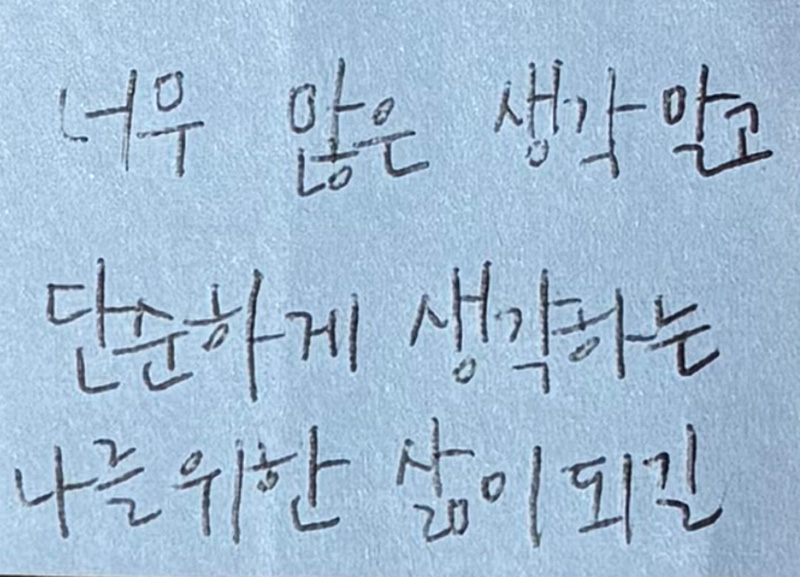 너무 많은 생각 말고
단순하게 생각하는
나를 위한 삶이 되길